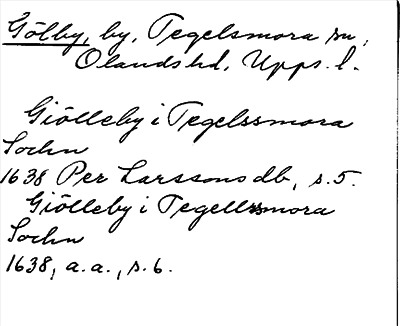 Gölby, by, Tegelsmora sn,
Olands hd, Upps. l.
Giölleby i Tegelssmora
Sochn
1638 Per Larssons db, s. 5.
Giölleby i Tegellssmora
Sochn
1638, a.a., s. 6.